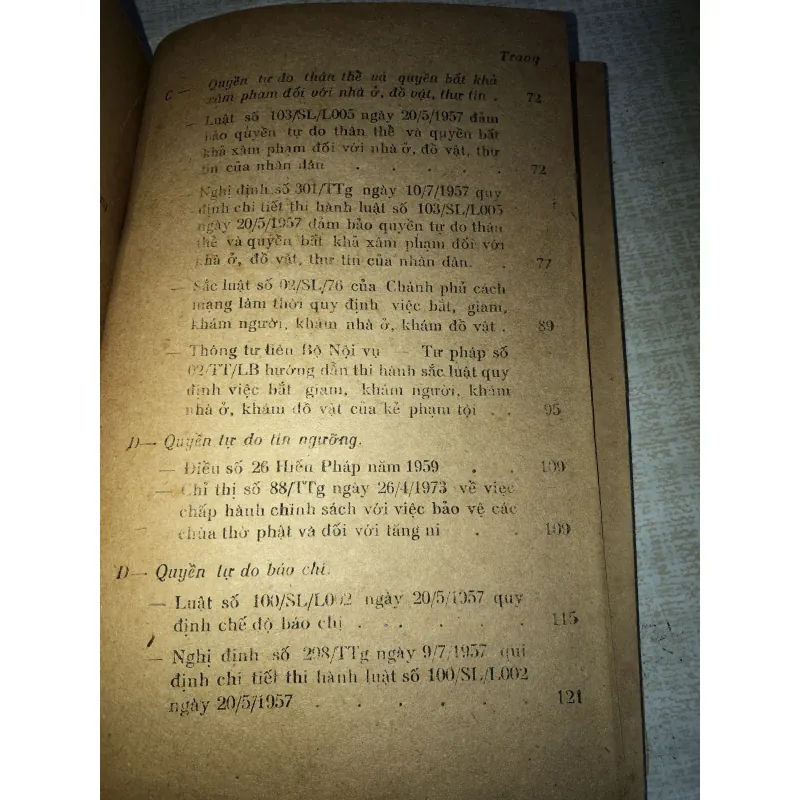 Trang
C — Quyền tự do thân thể và quyền bất khả
xâm phạm đối với nhà ở, đồ vật, thư tín . 72
— Luật số 103/SL/L005 ngày 20/5/1957 đảm
bảo quyền tự do thân thể và quyền bất
khả xâm phạm đối với nhà ở, đồ vật, thư
tín của nhân dân . . . . . 72
— Nghị định số 301/TTg ngày 10/7/1957 quy
định chi tiết thi hành luật số 103/SL/L005
ngày 20/5/1957 đảm bảo quyền tự do thân
thể và quyền bất khả xâm phạm đối với
nhà ở, đồ vật, thư tín của nhân dân. . 77
— Sắc luật số 02/SL/76 của Chánh phủ cách
mạng lâm thời quy định việc bắt, giam,
khám người, khám nhà ở, khám đồ vật . 89
— Thông tư liên Bộ Nội vụ — Tư pháp số
02/TT/LB hướng dẫn thi hành sắc luật quy
định việc bắt giam, khám người, khám
nhà ở, khám đồ vật của kẻ phạm tội . . 95
D— Quyền tự do tín ngưỡng.
— Điều số 26 Hiến Pháp năm 1959 . . 109
— Chỉ thị số 88/TTg ngày 26/4/1973 về việc
chấp hành chính sách với việc bảo vệ các
chùa thờ phật và đối với tăng ni . . 109
Đ— Quyền tự do báo chí.
— Luật số 100/SL/L002 ngày 20/5/1957 quy
định chế độ báo chị . . . . . 115
— Nghị định số 298/TTg ngày 9/7/1957 qui
định chi tiết thi hành luật số 100/SL/L002
ngày 20/5/1957 . . . . . . 121